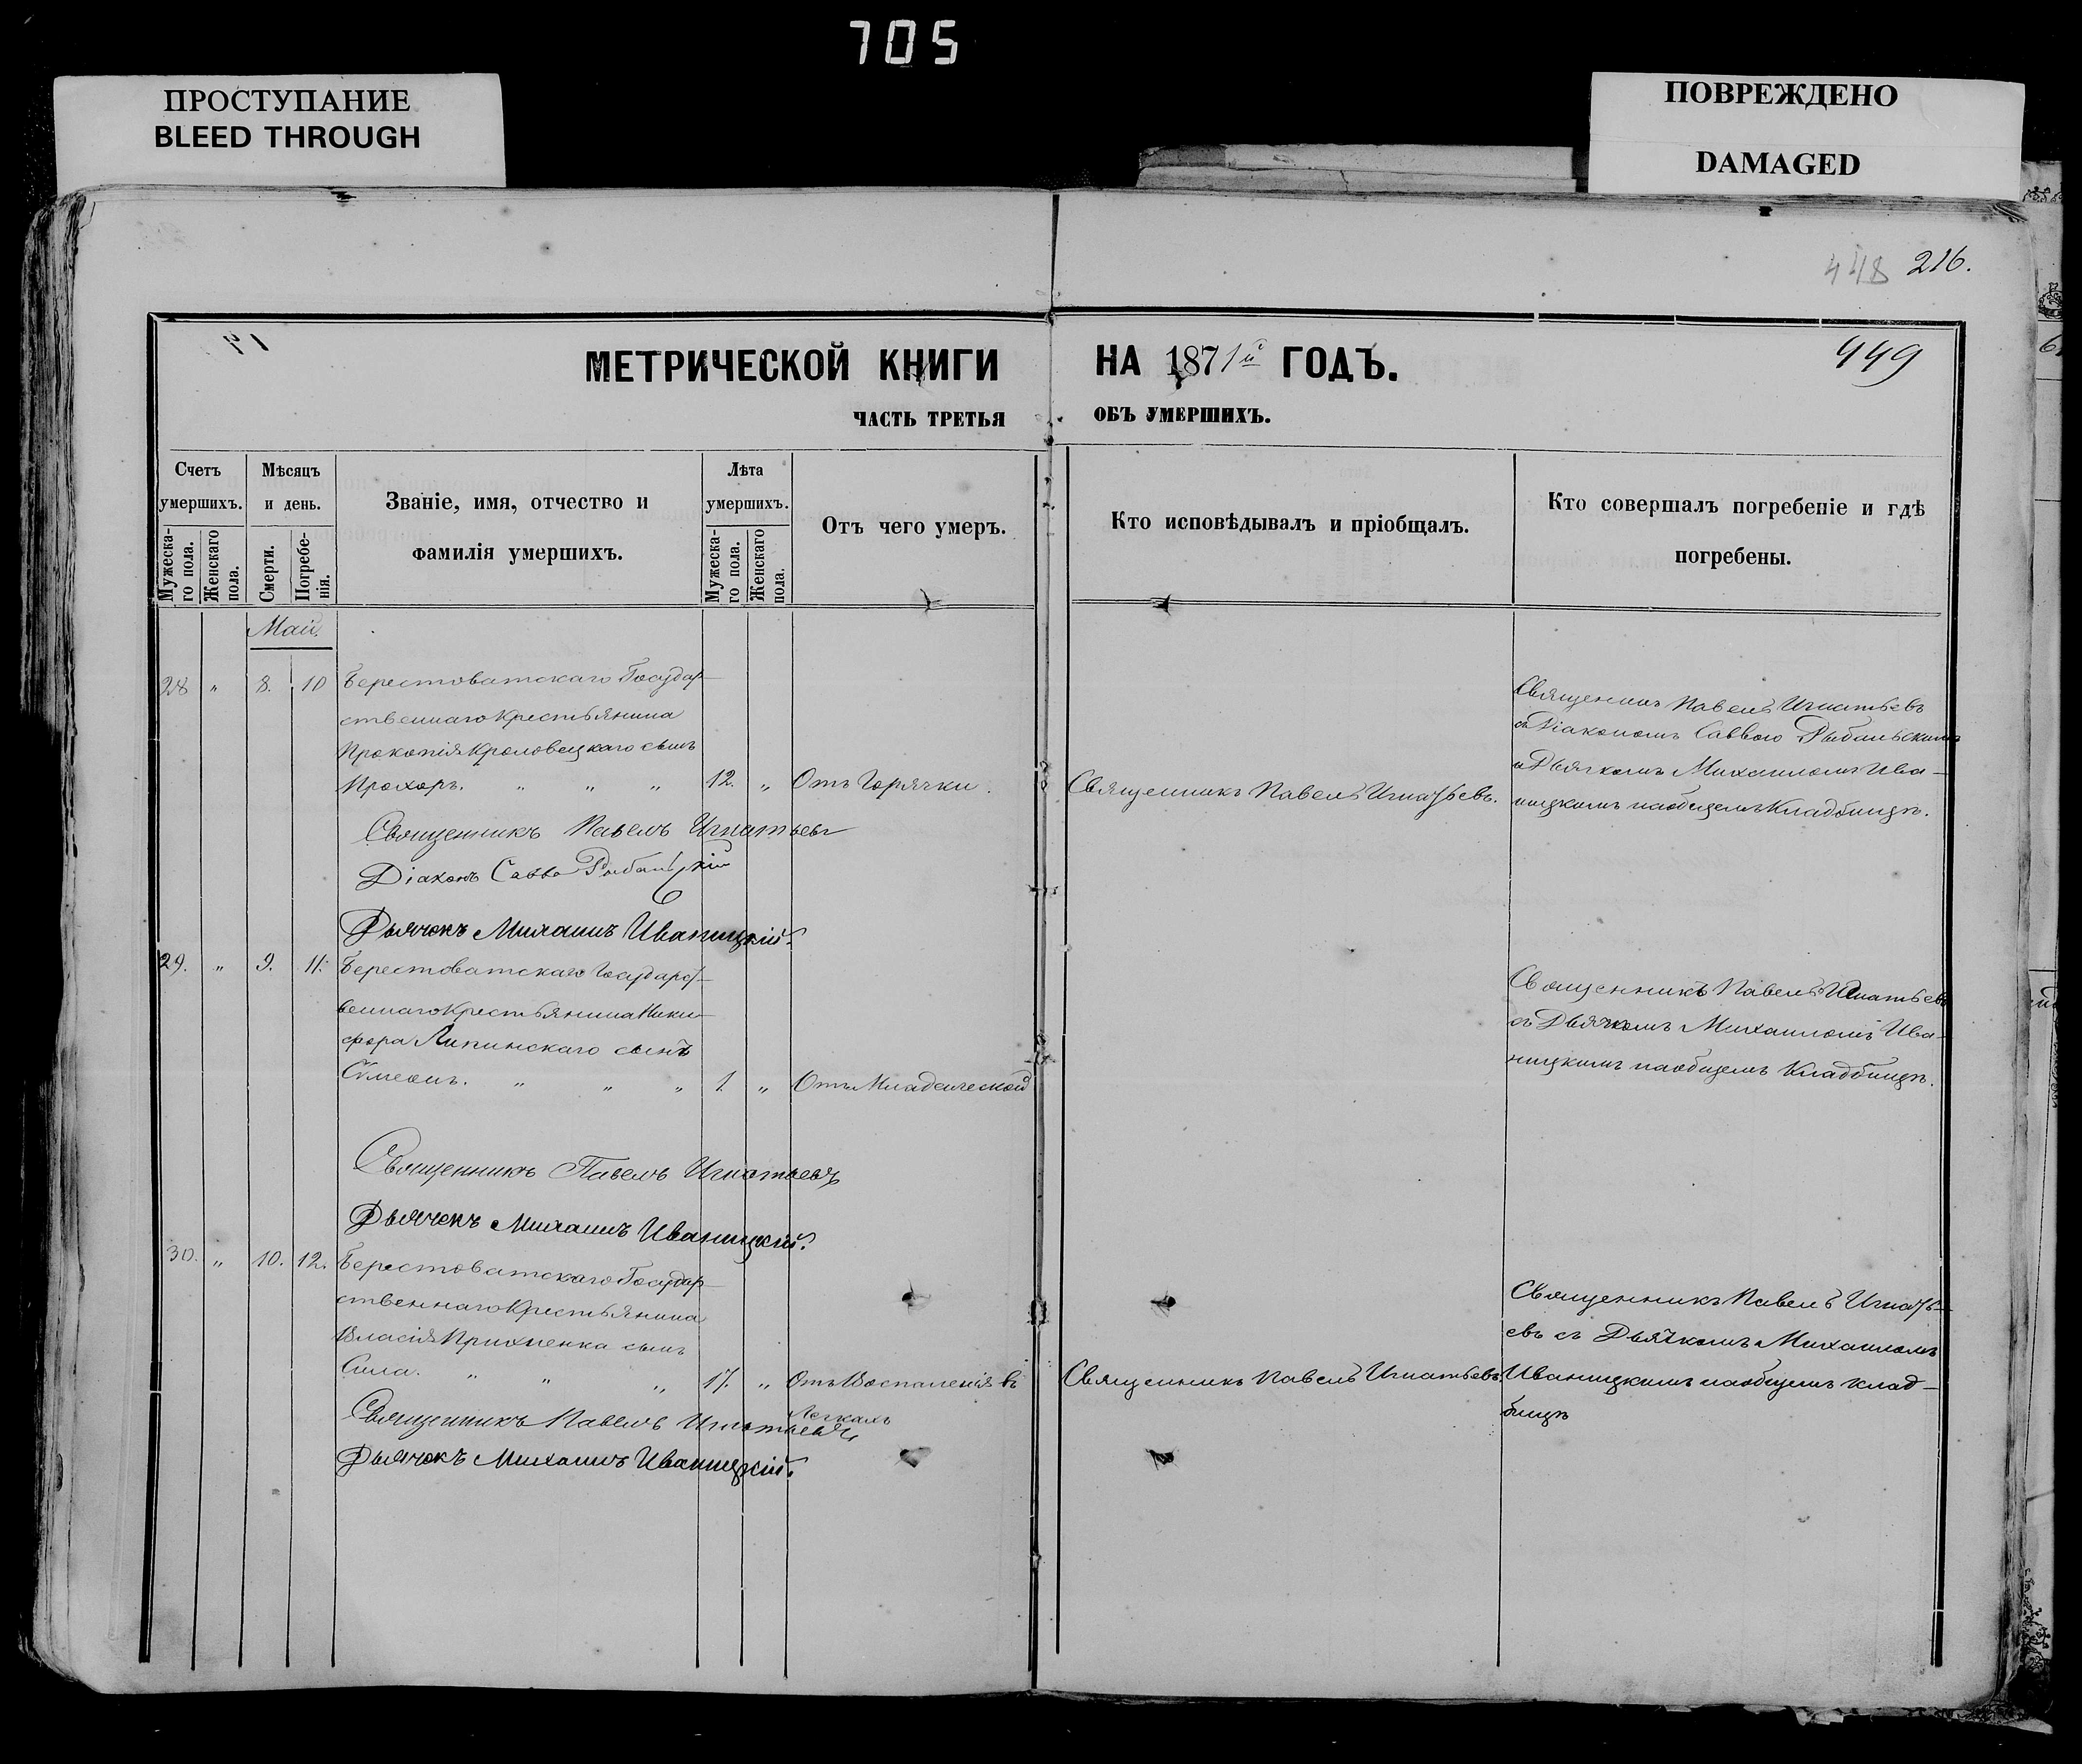 705
ПРОСТУПАНИЕ
BLEED THROUGH
ПОВРЕЖДЕНО
DAMAGED
448 216.
МЕТРИЧЕСКОЙ КНИГИ НА 1871й ГОДЪ.
449
ЧАСТЬ ТРЕТЬЯ ОБЪ УМЕРШИХЪ.
Счетъ умершихъ.
Мужеска-го пола.
Женскаго пола.
Мѣсяцъ и день.
Смерти.
Погребе-нія.
Званіе, имя, отчество и
фамилія умершихъ.
Лѣта умершихъ.
Мужеска-го пола.
Женскаго пола.
Отъ чего умеръ.
Кто исповѣдывалъ и пріобщалъ.
Кто совершалъ погребеніе и гдѣ
погребены.
Май.
28 " 8. 10 Берестоватскаго Государ-
ственнаго Крестьянина
Прокопія Кроловецкаго сынъ
Прохоръ. " " " 12. " Отъ Горячки.
Священникъ Павелъ Игнатьевъ.
Священникъ Павелъ Игнатьевъ
съ Діакономъ Саввою Рыбальскимъ
и Дьячкомъ Михаиломъ Ива-
ницкимъ на общемъ Кладбищѣ.
Священникъ Павелъ Игнатьевъ
Діаконъ Савва Рыбальскій
Дьячокъ Михаилъ Иваницкій.
29. " 9. 11. Берестоватскаго Государст-
веннаго Крестьянина Ники-
фора Липинскаго сынъ
Сѵмеонъ. " " " 1. " Отъ Младенческой
Священникъ Павелъ Игнатьевъ
съ Дьячкомъ Михаиломъ Ива-
ницкимъ на общемъ Кладбищѣ.
Священникъ Павелъ Игнатьевъ
Дьячекъ Михаилъ Иваницкій.
30. " 10. 12. Берестоватскаго Государ-
ственнаго Крестьянина
Власія Прихненка сынъ
Сила. " " " 17. " Отъ Воспаленія въ
Легкахъ
Священникъ Павелъ Игнатьевъ
Священникъ Павелъ Игнать-
евъ съ Дьячкомъ Михаиломъ
Иваницкимъ на общемъ клад-
бищѣ
Священникъ Павелъ Игнатьевъ
Дьячокъ Михаилъ Иваницкій.